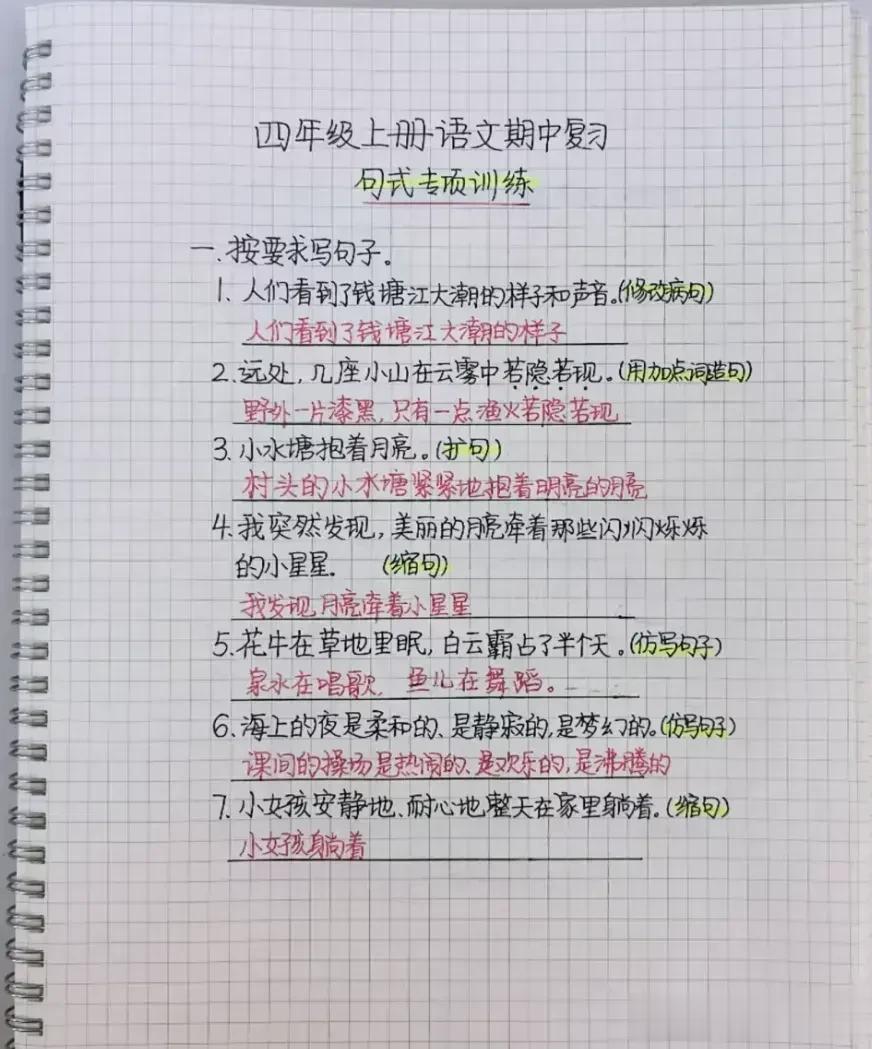 四年级上册语文期中复习
句式专项训练
一.按要求写句子。
1. 人们看到了钱塘江大潮的样子和声音。(修改病句)
人们看到了钱塘江大潮的样子
2.远处,几座小山在云雾中若隐若现。(用加点词造句)
野外一片漆黑,只有一点渔火若隐若现
3.小水塘抱着月亮。(扩句)
村头的小水塘紧紧地抱着明亮的月亮
4.我突然发现,美丽的月亮牵着那些闪闪烁烁
的小星星. (缩句)
我发现月亮牵着小星星
5.花牛在草地里眠,白云霸占了半个天。(仿写句子)
泉水在唱歌, 鱼儿在舞蹈。
6.海上的夜是柔和的、是静寂的,是梦幻的。(仿写句子)
课间的操场是热闹的、是欢乐的,是沸腾的
7.小女孩安静地、耐心地整天在家里躺着。(缩句)
小女孩躺着